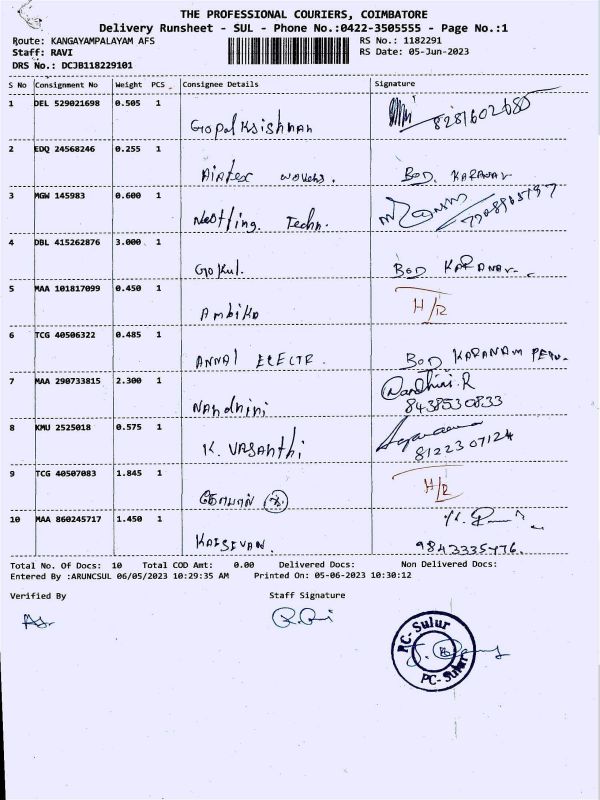 THE PROFESSIONAL COURIERS, COIMBATORE
Delivery Runsheet - SUL - Phone No.:0422-3505555 - Page No.:1
Route: KANGAYAMPALAYAM AFS RS No.: 1182291
Staff: RAVI RS Date: 05-Jun-2023
DRS No.: DCJB118229101
S No Consignment No Weight PCS Consignee Details Signature
1 DEL 529021698 0.505 1 Gopalkrishnan
2 EDQ 24568246 0.255 1 Airtex BOD. KARANAR
3 MGW 145983 0.600 1 Techn.
4 DBL 415262876 3.000 1 Gokul. BOD
5 MAA 101817099 0.450 1 Ambika H/R
6 TCG 40506322 0.485 1 ANNAI ELECTR. BOD KARANAM
7 MAA 290733815 2.300 1 Nandhini Nandhini.R
8438530833
8 KMU 2525018 0.575 1 K. VASANTHI
8122307124
9 TCG 40507083 1.845 1 H/R
10 MAA 860245717 1.450 1
Total No. Of Docs: 10 Total COD Amt: 0.00 Delivered Docs: Non Delivered Docs:
Entered By :ARUNCSUL 06/05/2023 10:29:35 AM Printed On: 05-06-2023 10:30:12
Verified By Staff Signature
PC-Sulur
PC-Sulur